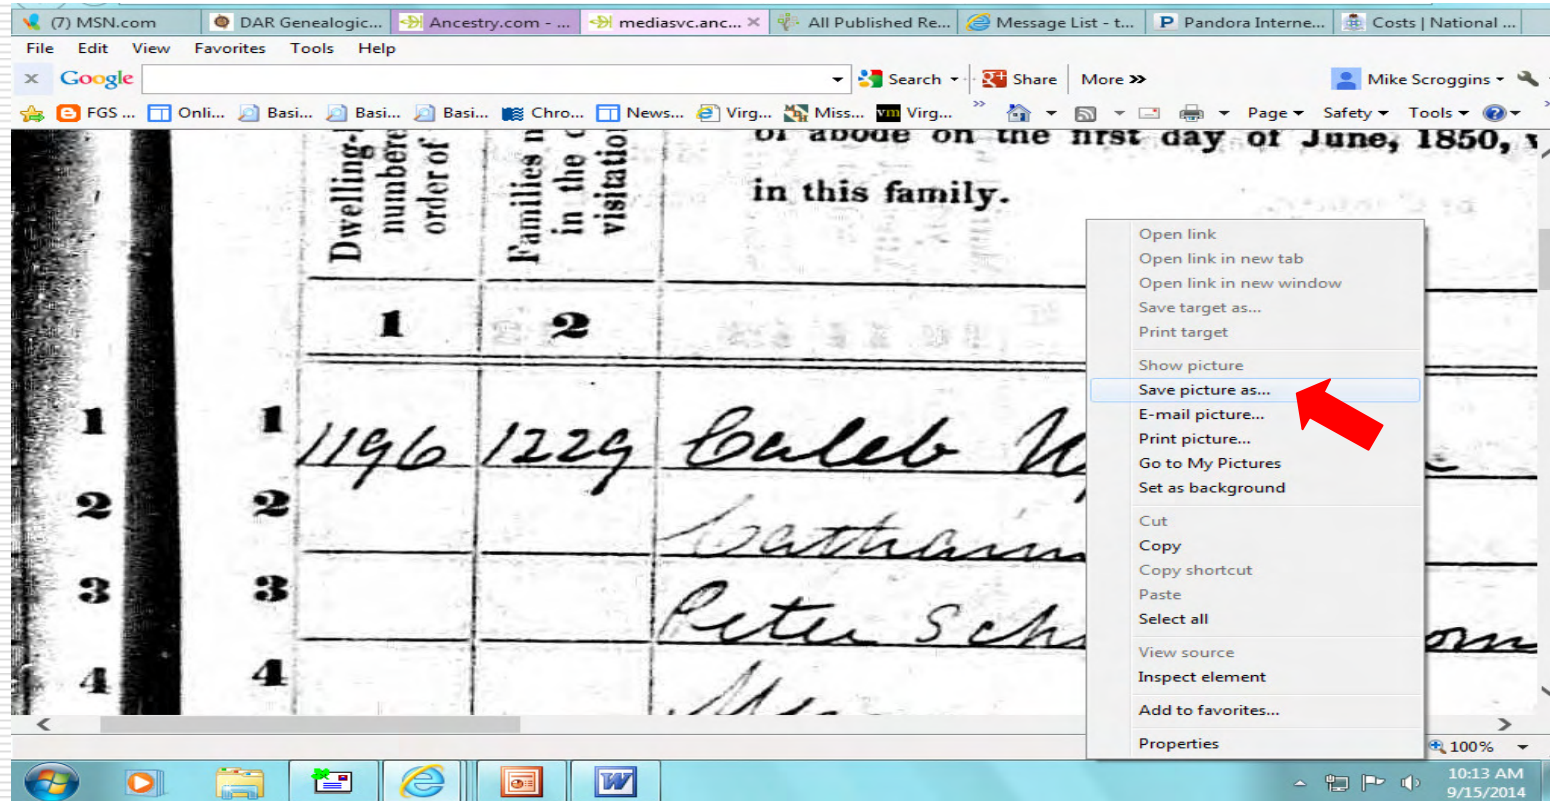 (7) MSN.com DAR Genealogic... Ancestry.com - ... mediasvc.anc... × All Published Re... Message List - t... Pandora Interne... Costs | National ...
File Edit View Favorites Tools Help
x Google Search Share More >> Mike Scroggins
FGS ... Onli... Basi... Basi... Basi... Chro... News... Virg... Miss... vm Virg... >> Page Safety Tools
Dwelling-
numbere
order of
Families n
in the
visitatio
of abode on the first day of June, 1850,
in this family.
1 2
1 1 1196 1229 Caleb
2 2
3 3 Peter
4 4
Open link
Open link in new tab
Open link in new window
Save target as...
Print target
Show picture
Save picture as...
E-mail picture...
Print picture...
Go to My Pictures
Set as background
Cut
Copy
Copy shortcut
Paste
Select all
View source
Inspect element
Add to favorites...
Properties
100%
10:13 AM
9/15/2014